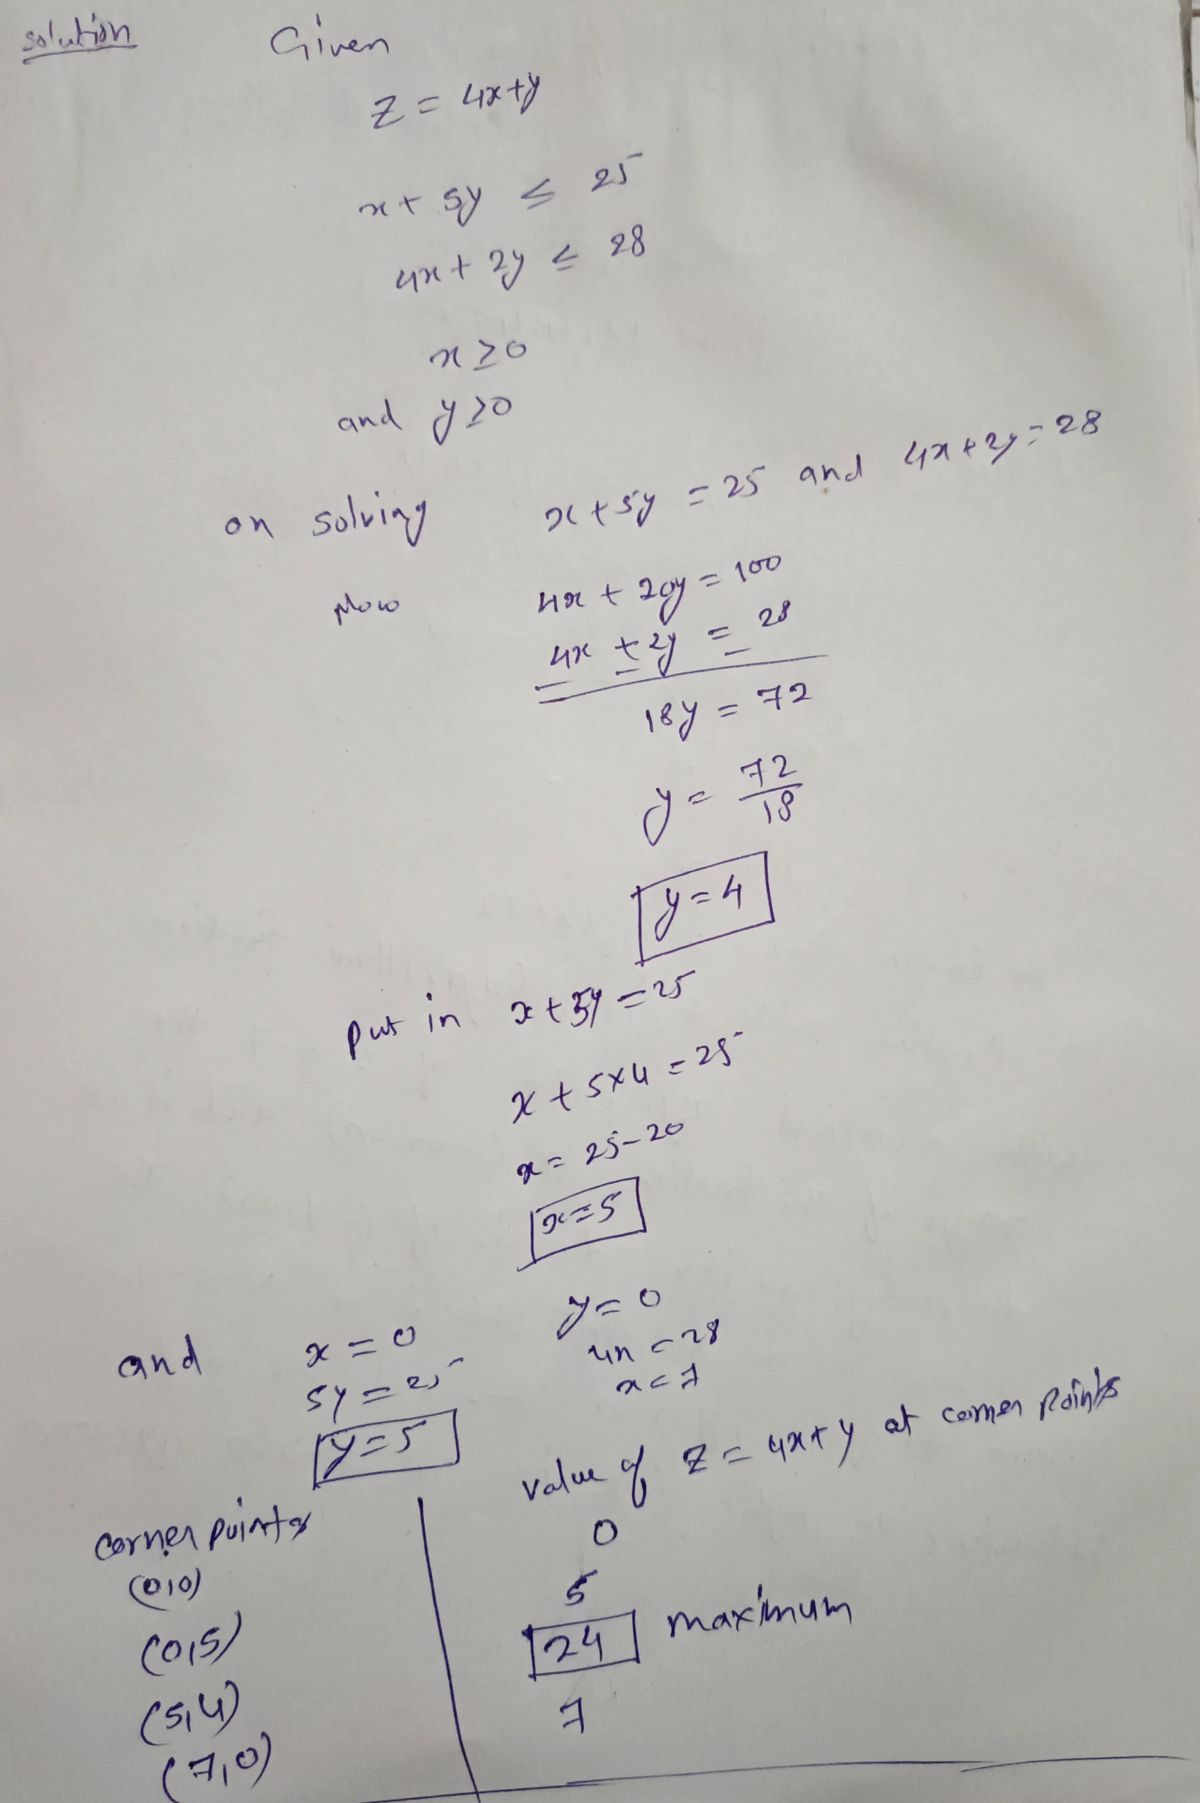 solution Given
Z = 4x+y
x + 5y ≤ 25
4x + 2y ≤ 28
x ≥ 0
and y ≥ 0
on solving x + 5y = 25 and 4x + 2y = 28
Now 4x + 20y = 100
4x + 2y = 28
18y = 72
y = 72/18
y = 4
put in x + 5y = 25
x + 5×4 = 25
x = 25-20
x = 5
and x = 0 y = 0
5y = 25 4x = 28
y = 5 x = 7
corner points value of Z = 4x+y at corner points
(0,0) 0
(0,5) 5
(5,4) 24 maximum
(7,0) 7